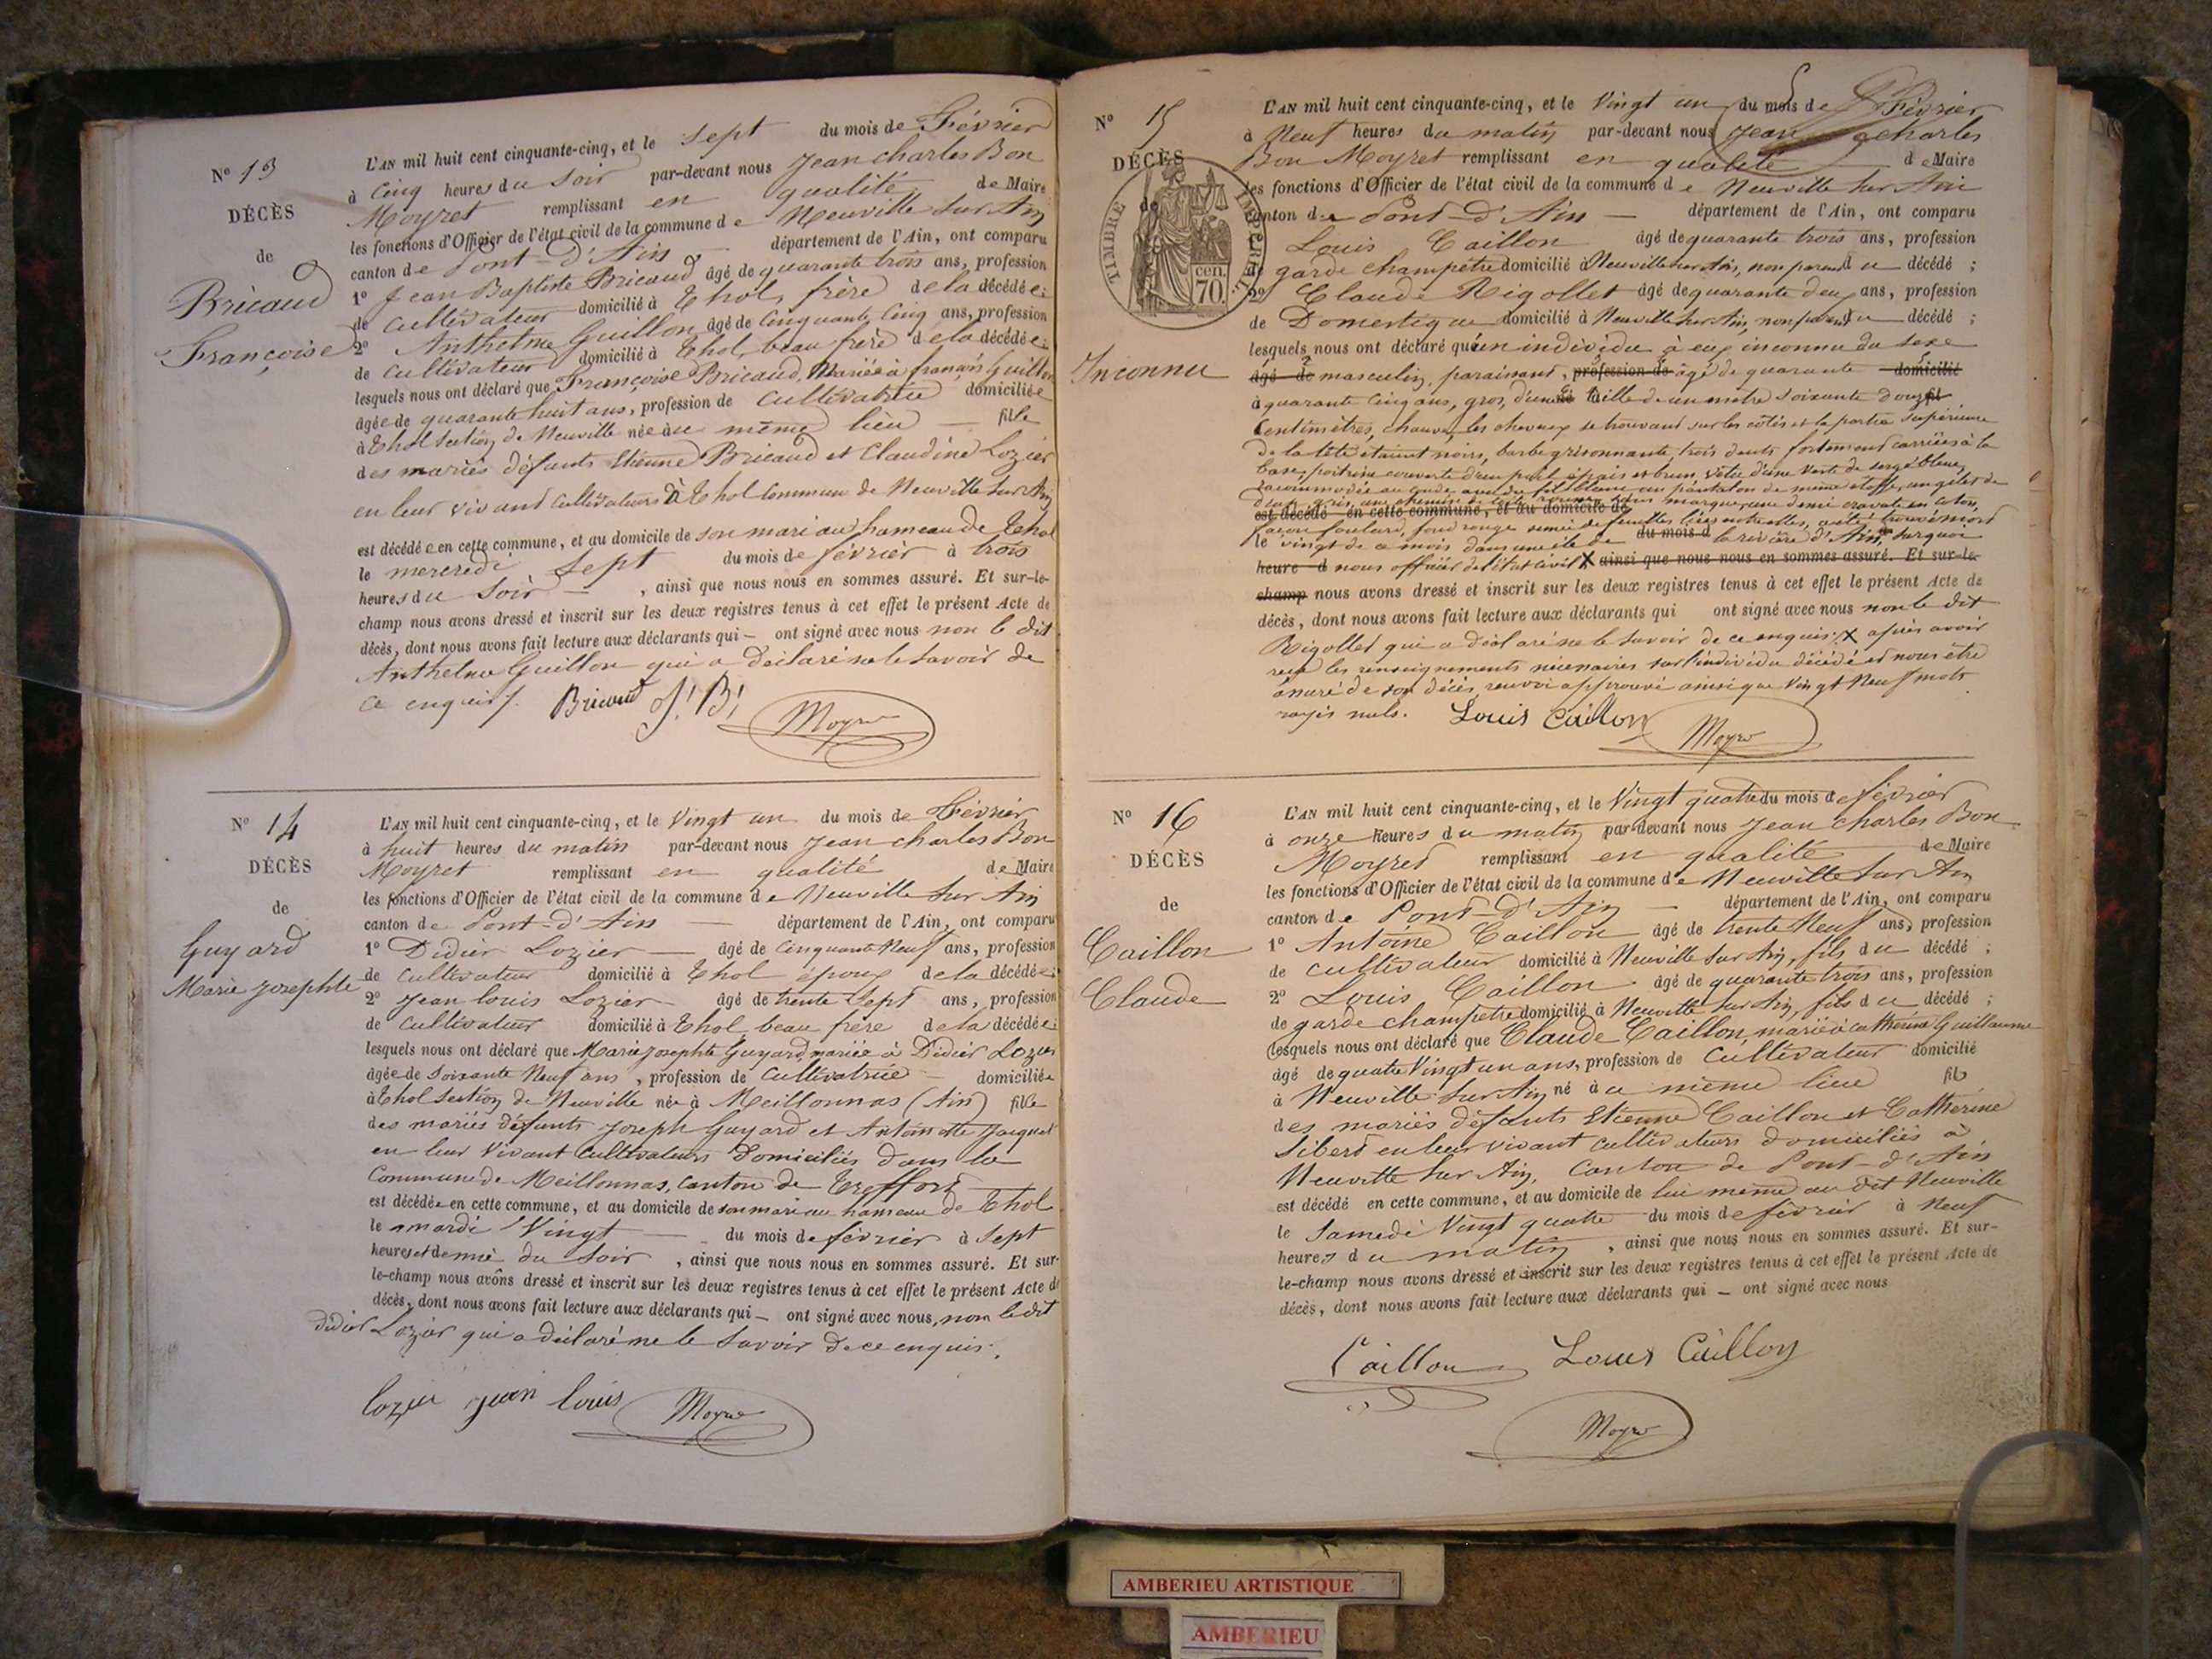 N° 13
DÉCÈS
de
Bricaud
Françoise
L'AN mil huit cent cinquante-cinq, et le Sept du mois de Février
à Cinq heures du Soir par-devant nous Jean Charles Bon
Moyret remplissant en qualité de Maire
les fonctions d'Officier de l'état civil de la commune de Neuville sur Ain
canton de Pont-d'Ain département de l'Ain, ont comparu
1° Jean Baptiste Bricaud âgé de quarante trois ans, profession
de Cultivateur domicilié à Thol, frère de la décédée ;
2° Anthelme Guillon âgé de Cinquante Cinq ans, profession
de Cultivateur domicilié à Thol, beau frère de la décédée ;
lesquels nous ont déclaré que Françoise Bricaud, Mariée à françois Guillon
âgée de quarante huit ans, profession de Cultivatrice domiciliée
à Thol Section de Neuville née au même lieu fille
des mariés défunts Etienne Bricaud et Claudine Lozier
en leur vivant Cultivateurs à Thol Commune de Neuville sur Ain
est décédée en cette commune, et au domicile de son mari au hameau de Thol
le mercredi Sept du mois de février à trois
heures du Soir , ainsi que nous nous en sommes assuré. Et sur-le-
champ nous avons dressé et inscrit sur les deux registres tenus à cet effet le présent Acte de
décès, dont nous avons fait lecture aux déclarants qui ont signé avec nous non le dit
Anthelme Guillon qui a déclaré ne le savoir de
ce enquis.
Bricaud J. B.
Moyret
N° 14
DÉCÈS
de
Guyard
Marie Josephte
L'AN mil huit cent cinquante-cinq, et le Vingt un du mois de Février
à huit heures du matin par-devant nous Jean Charles Bon
Moyret remplissant en qualité de Maire
les fonctions d'Officier de l'état civil de la commune de Neuville sur Ain
canton de Pont-d'Ain département de l'Ain, ont comparu
1° Didier Lozier âgé de Cinquante Neuf ans, profession
de Cultivateur domicilié à Thol époux de la décédée ;
2° Jean louis Lozier âgé de trente Sept ans, profession
de Cultivateur domicilié à Thol beau frère de la décédée ;
lesquels nous ont déclaré que Marie Josephte Guyard mariée à Didier Lozier
âgée de soixante Neuf ans, profession de Cultivatrice domiciliée
à Thol Section de Neuville née à Meillonnas (Ain) fille
des mariés défunts Joseph Guyard et Antoinette Jaquet
en leur Vivant Cultivateurs Domiciliés dans la
Commune de Meillonnas, Canton de Treffort
est décédée en cette commune, et au domicile de son mari au hameau de Thol
le mardi Vingt du mois de février à Sept
heures et demie du Soir , ainsi que nous nous en sommes assuré. Et sur-
le-champ nous avons dressé et inscrit sur les deux registres tenus à cet effet le présent Acte de
décès, dont nous avons fait lecture aux déclarants qui ont signé avec nous, non le dit
Didier Lozier qui a déclaré ne le Savoir de ce enquis.
Lozier jean louis
Moyret
N° 15
DÉCÈS
de
TIMBRE IMPERIAL
cen.
70.
Inconnu
L'AN mil huit cent cinquante-cinq, et le Vingt un du mois de Février
à Neuf heures du matin par-devant nous Jean Charles
Bon Moyret remplissant en qualité de Maire
les fonctions d'Officier de l'état civil de la commune de Neuville sur Ain
canton de Pont-d'Ain département de l'Ain, ont comparu
Louis Caillon âgé de quarante trois ans, profession
de garde champêtre domicilié à Neuville sur Ain, non parent du décédé ;
2° Claude Rigollet âgé de quarante deux ans, profession
de Domestique domicilié à Neuville sur Ain, non parent du décédé ;
lesquels nous ont déclaré qu'un individu à eux inconnu du sexe
âgé de masculin, paraissant, profession de âgé de quarante domicilié
à quarante Cinq ans, gros, d'une taille de un mètre soixante douze
Centimètres, chauve, les cheveux se trouvant sur les côtés et la partie supérieure
de la tête étaient noirs, barbe grisonnante, trois dents fortement carriées à la
base, poitrine couverte d'un poil épais et brun, vêtu d'une Veste de serge bleue,
racommodée au coude avec du fil blanc, un pantalon de même étoffe, un gilet de
drap gris, une chemise de toile rousse sans marque, une demi cravate en coton,
est décédé en cette commune, et au domicile de
façon foulard, fond rouge semée de feuilles liées entr'elles, a été trouvé mort
le vingt de ce mois dans une île de du mois d la rivière d'Ain, surquoi
heure d nous officier de l'état civil X ainsi que nous nous en sommes assuré. Et sur-le-
champ nous avons dressé et inscrit sur les deux registres tenus à cet effet le présent Acte de
décès, dont nous avons fait lecture aux déclarants qui ont signé avec nous non le dit
Rigollet qui a déclaré ne le savoir de ce enquis. X après avoir
reçu les renseignements nécessaires sur l'individu décédé et nous être
assuré de son décès, renvoi approuvé ainsi que Vingt Neuf mots
rayés nuls.
Louis Caillon
Moyret
N° 16
DÉCÈS
de
Caillon
Claude
L'AN mil huit cent cinquante-cinq, et le Vingt quatre du mois de février
à onze heures du matin par-devant nous Jean Charles Bon
Moyret remplissant en qualité de Maire
les fonctions d'Officier de l'état civil de la commune de Neuville sur Ain
canton de Pont-d'Ain département de l'Ain, ont comparu
1° Antoine Caillon âgé de trente Neuf ans, profession
de cultivateur domicilié à Neuville sur Ain, fils du décédé ;
2° Louis Caillon âgé de quarante trois ans, profession
de garde champêtre domicilié à Neuville sur Ain, fils du décédé ;
lesquels nous ont déclaré que Claude Caillon, marié à Catherine Guillaume
âgé de quatre Vingt un ans, profession de Cultivateur domicilié
à Neuville sur Ain né à ce même lieu fils
des mariés défunts Etienne Caillon et Catherine
Sibert en leur vivant cultivateurs Domiciliés à
Neuville sur Ain, Canton de Pont-d'Ain
est décédé en cette commune, et au domicile de lui même au dit Neuville
le Samedi Vingt quatre du mois de février à Neuf
heures du matin , ainsi que nous nous en sommes assuré. Et sur-
le-champ nous avons dressé et inscrit sur les deux registres tenus à cet effet le présent Acte de
décès, dont nous avons fait lecture aux déclarants qui ont signé avec nous
Caillon Louis Caillon
Moyret
AMBERIEU ARTISTIQUE
AMBERIEU